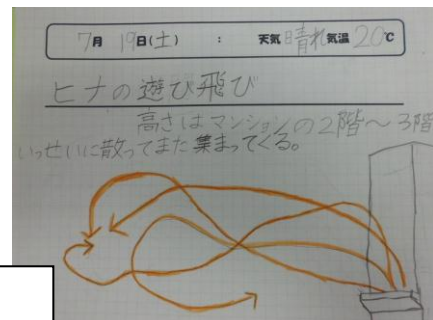 7月 19日(土) : 天気 晴れ 気温 20℃
ヒナの遊び飛び
高さはマンションの2階～3階
いっせいに散ってまた集まってくる。